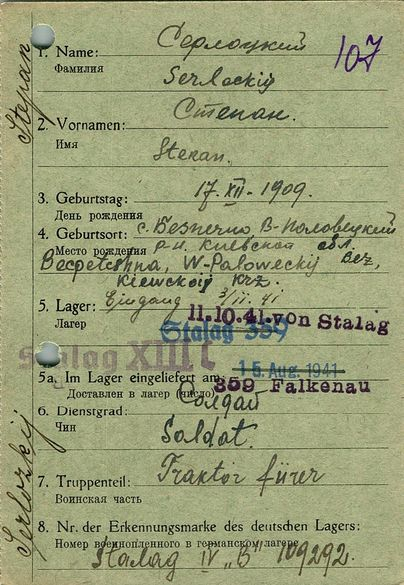 Серлоцкий
1. Name:
107
Фамилия
Serlockij
Stepan
Степан.
2. Vornamen:
Имя
Stepan.
3. Geburtstag: 17. XII - 1909.
День рождения
с. Безпечно В-Половецкий
4. Geburtsort:
Место рождения р-н. Киевской обл.
W-Paloweckij Bez,
Kiewskoij Krz.
5. Lager: Eingang 3/II. 41
Лагер
11.10.41. von Stalag
Stalag 359
Stalag XIII C
15. Aug. 1941
5a. Im Lager eingeliefert am:
359 Falkenau
Доставлен в лагер (число)
Солдат
6. Dienstgrad:
Чин
Soldat.
7. Truppenteil: Traktor fürer
Воинская часть
8. Nr. der Erkennungsmarke des deutschen Lagers:
Номер военнопленного в германском лагере
Stalag IV "B" 109292.